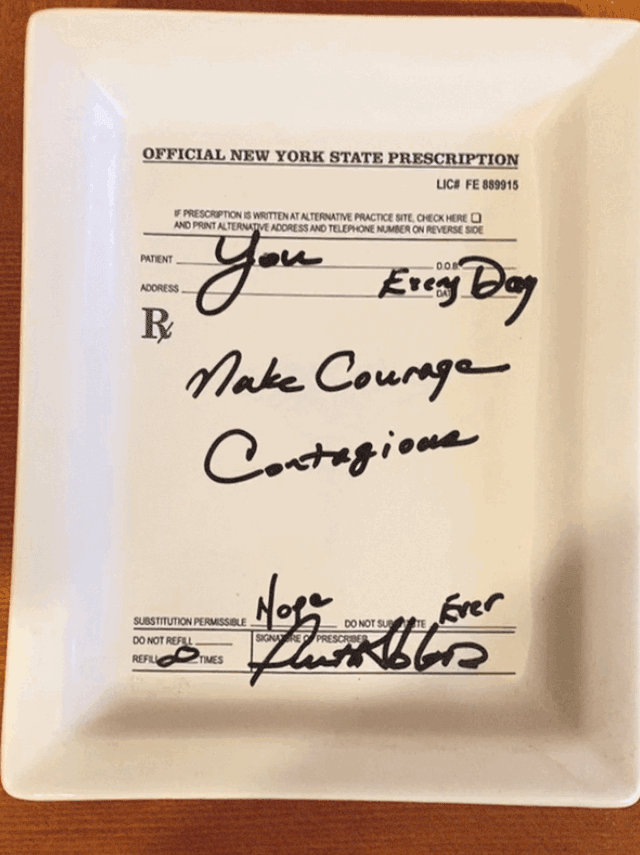 OFFICIAL NEW YORK STATE PRESCRIPTION
LIC# FE 889915
IF PRESCRIPTION IS WRITTEN AT ALTERNATIVE PRACTICE SITE, CHECK HERE ☐
AND PRINT ALTERNATIVE ADDRESS AND TELEPHONE NUMBER ON REVERSE SIDE
PATIENT You D.O.B.
ADDRESS Every Day
Rx
Make Courage
Contagious
SUBSTITUTION PERMISSIBLE Nope DO NOT SUBSTITUTE Ever
DO NOT REFILL SIGNATURE OF PRESCRIBER
REFILL ∞ TIMES